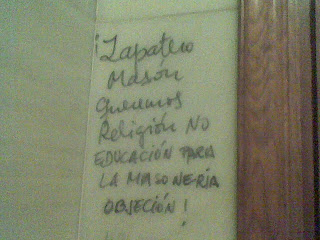 ¡Zapatero
Masón
Queremos
Religión NO
EDUCACIÓN PARA
LA MASONERÍA
OBJECIÓN!